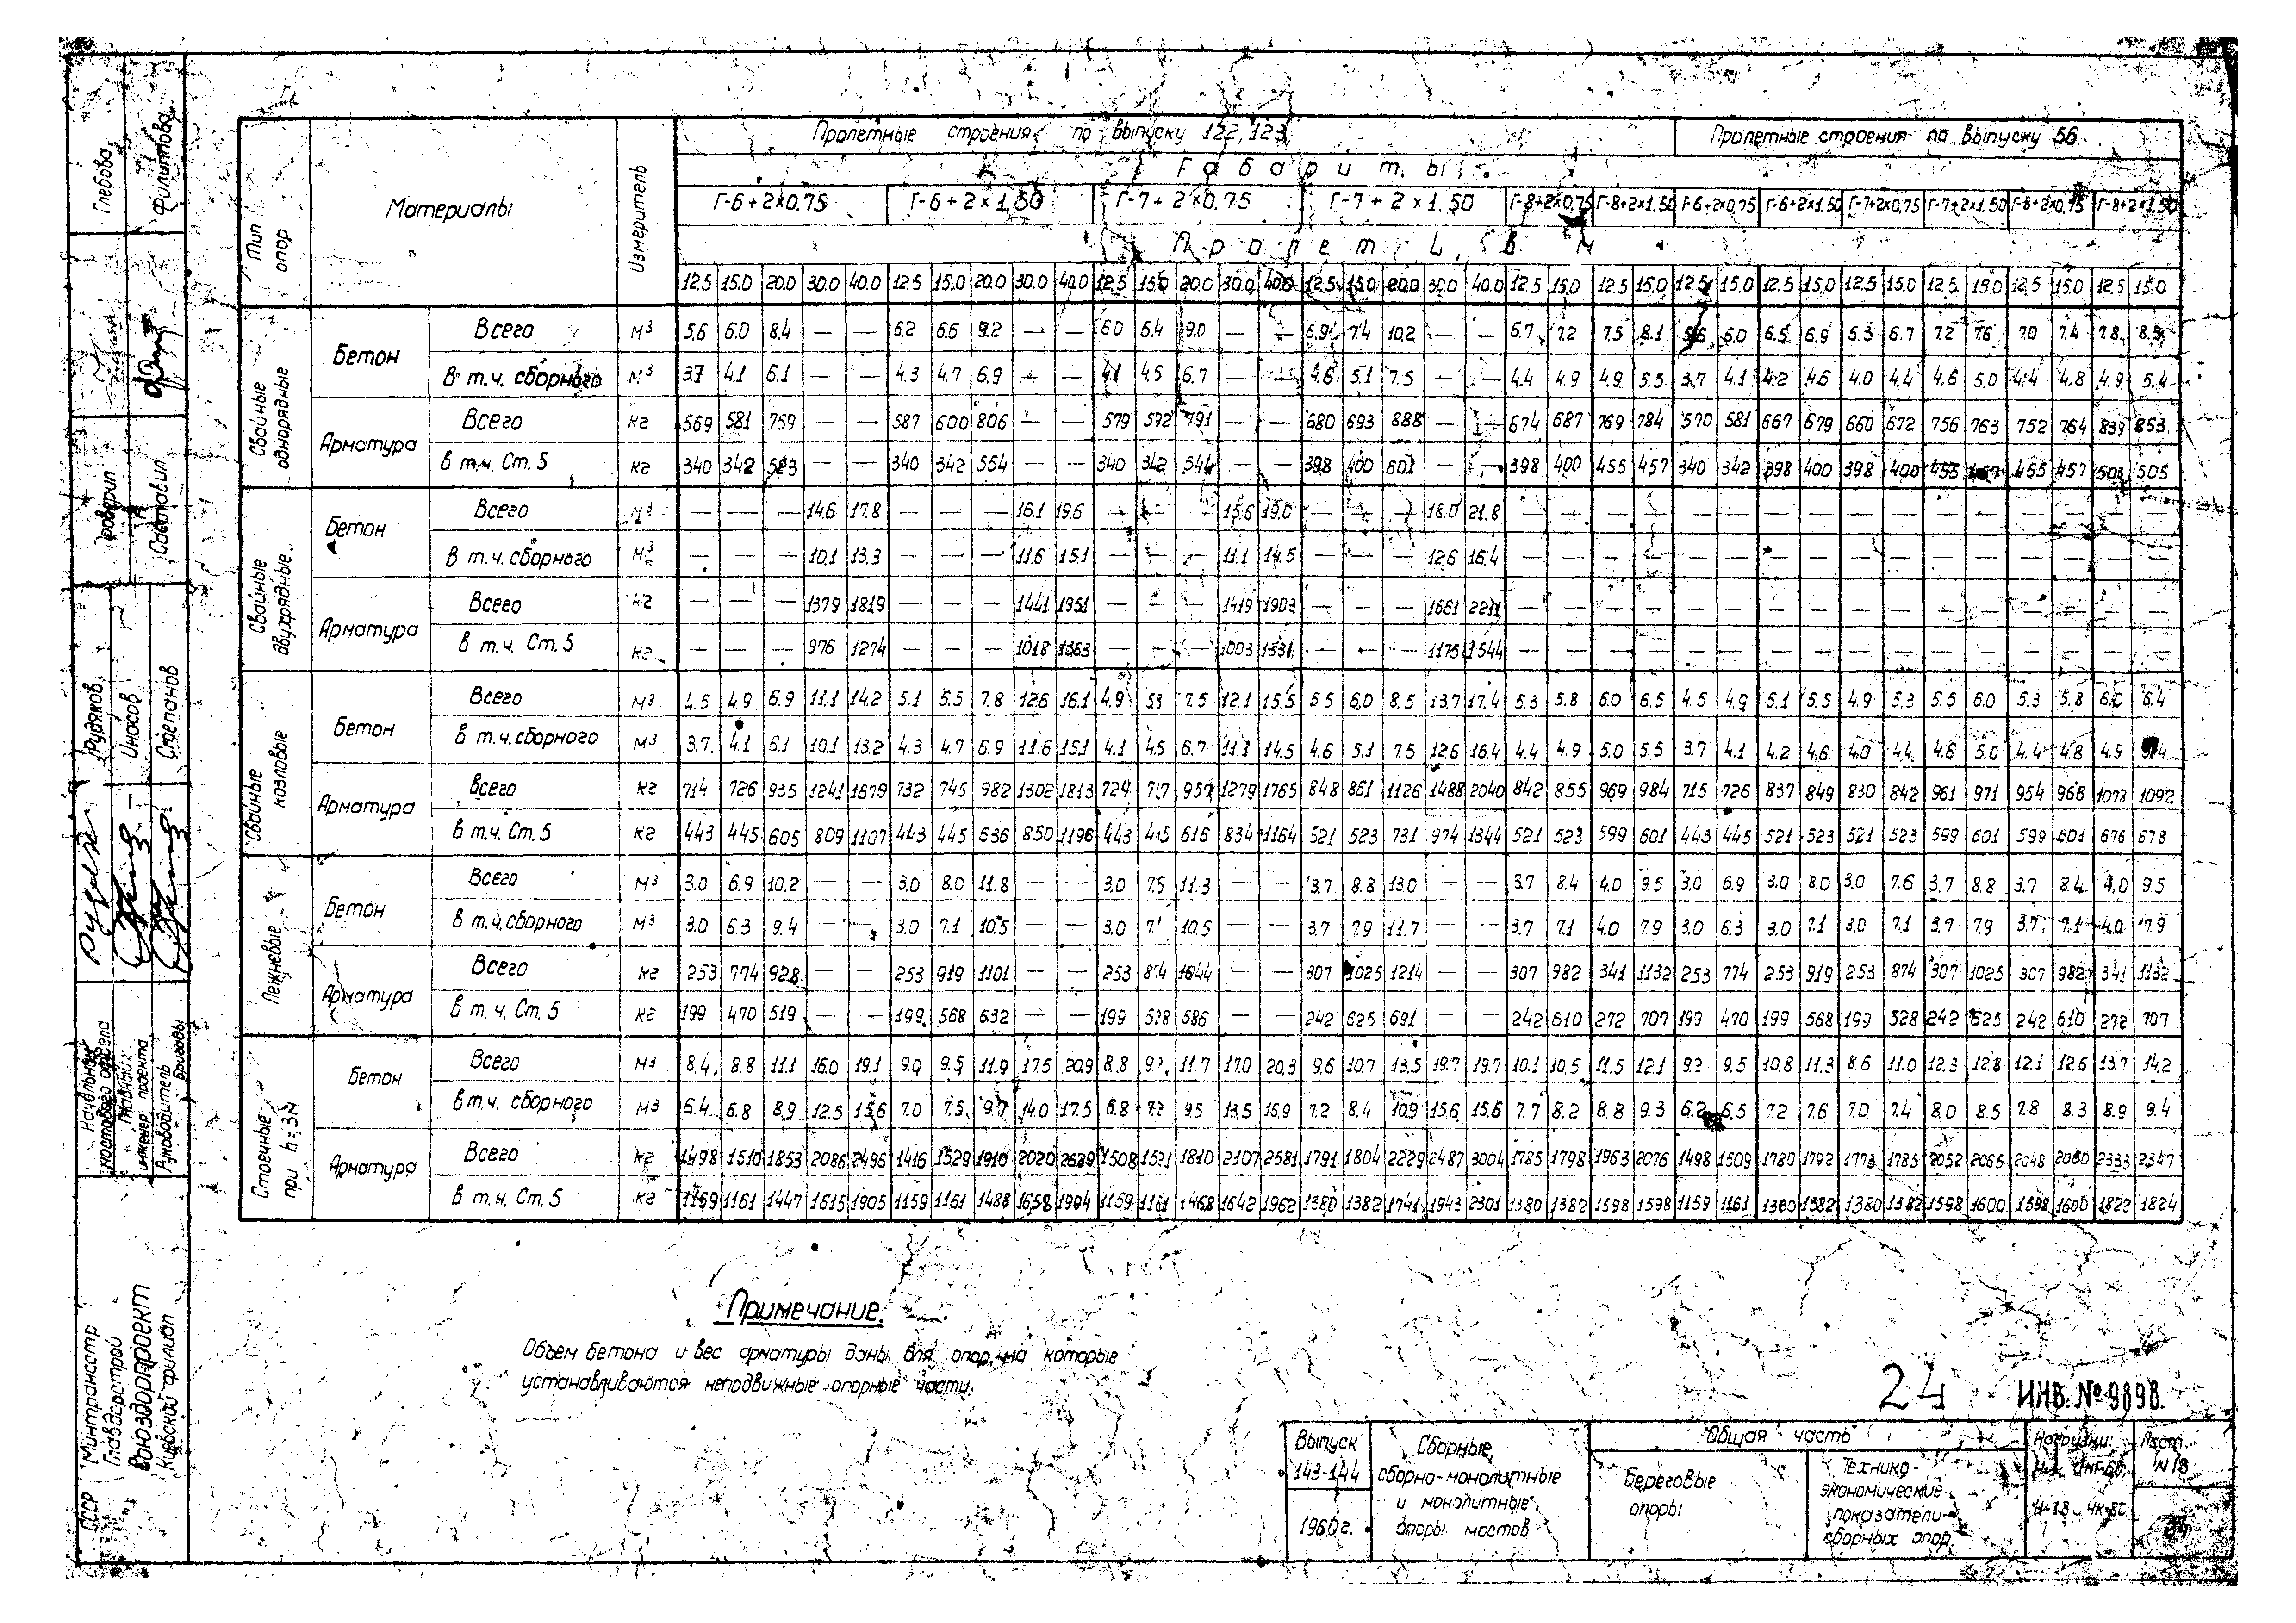 Пролетные строения по выпуску 122, 123
Пролетные строения по выпуску 56
Тип опор
Материалы
Измеритель
Габариты
Г-6+2×0.75 Г-6+2×1.50 Г-7+2×0.75 Г-7+2×1.50 Г-8+2×0.75 Г-8+2×1.50 Г-6+2×0.75 Г-6+2×1.50 Г-7+2×0.75 Г-7+2×1.50 Г-8+2×0.75 Г-8+2×1.50
Пролет L, в м
12.5 15.0 20.0 30.0 40.0 12.5 15.0 20.0 30.0 40.0 12.5 15.0 20.0 30.0 40.0 12.5 15.0 20.0 30.0 40.0 12.5 15.0 12.5 15.0 12.5 15.0 12.5 15.0 12.5 15.0 12.5 15.0 12.5 15.0 12.5 15.0
Свайные однорядные
Бетон
Всего м3 5.6 6.0 8.4 — — 6.2 6.6 9.2 — — 6.0 6.4 9.0 — — 6.9 7.4 10.2 — — 6.7 7.2 7.5 8.1 5.6 6.0 6.5 6.9 6.3 6.7 7.2 7.6 7.0 7.4 7.8 8.3
в т.ч. сборного м3 3.7 4.1 6.1 — — 4.3 4.7 6.9 — — 4.1 4.5 6.7 — — 4.6 5.1 7.5 — — 4.4 4.9 4.9 5.5 3.7 4.1 4.2 4.6 4.0 4.4 4.6 5.0 4.4 4.8 4.9 5.4
Арматура
Всего кг 569 581 759 — — 587 600 806 — — 579 592 791 — — 680 693 888 — — 674 687 769 784 570 581 667 679 660 672 756 763 752 764 839 853
в т.ч. Ст. 5 кг 340 342 523 — — 340 342 554 — — 340 342 544 — — 398 400 601 — — 398 400 455 457 340 342 398 400 398 400 455 457 455 457 503 505
Свайные двухрядные
Бетон
Всего м3 — — — 14.6 17.8 — — — 16.1 19.6 — — — 15.6 19.0 — — — 18.0 21.8 — — — — — — — — — — — — — — — —
в т.ч. сборного м3 — — — 10.1 13.3 — — — 11.6 15.1 — — — 11.1 14.5 — — — 12.6 16.4 — — — — — — — — — — — — — — — —
Арматура
Всего кг — — — 1379 1819 — — — 1441 1951 — — — 1419 1903 — — — 1661 2211 — — — — — — — — — — — — — — — —
в т.ч. Ст. 5 кг — — — 976 1274 — — — 1018 1363 — — — 1003 1331 — — — 1175 1544 — — — — — — — — — — — — — — — —
Свайные козловые
Бетон
Всего м3 4.5 4.9 6.9 11.1 14.2 5.1 5.5 7.8 12.6 16.1 4.9 5.3 7.5 12.1 15.5 5.5 6.0 8.5 13.7 17.4 5.3 5.8 6.0 6.5 4.5 4.9 5.1 5.5 4.9 5.3 5.5 6.0 5.3 5.8 6.0 6.4
в т.ч. сборного м3 3.7 4.1 6.1 10.1 13.2 4.3 4.7 6.9 11.6 15.1 4.1 4.5 6.7 11.1 14.5 4.6 5.1 7.5 12.6 16.4 4.4 4.9 5.0 5.5 3.7 4.1 4.2 4.6 4.0 4.4 4.6 5.0 4.4 4.8 4.9
Арматура
Всего кг 714 726 935 1241 1679 732 745 982 1302 1813 724 737 959 1279 1765 848 861 1126 1488 2040 842 855 969 984 715 726 837 849 830 842 961 971 954 966 1078 1092
в т.ч. Ст. 5 кг 443 445 605 809 1107 443 445 636 850 1196 443 445 616 834 1164 521 523 731 974 1344 521 523 599 601 443 445 521 523 521 523 599 601 599 601 676 678
Лежневые
Бетон
Всего м3 3.0 6.9 10.2 — — 3.0 8.0 11.8 — — 3.0 7.5 11.3 — — 3.7 8.8 13.0 — — 3.7 8.4 4.0 9.5 3.0 6.9 3.0 8.0 3.0 7.6 3.7 8.8 3.7 8.4 4.0 9.5
в т.ч. сборного м3 3.0 6.3 9.4 — — 3.0 7.1 10.5 — — 3.0 7.1 10.5 — — 3.7 7.9 11.7 — — 3.7 7.1 4.0 7.9 3.0 6.3 3.0 7.1 3.0 7.1 3.7 7.9 3.7 7.1 4.0 7.9
Арматура
Всего кг 253 774 928 — — 253 919 1101 — — 253 874 1044 — — 307 1025 1214 — — 307 982 341 1132 253 774 253 919 253 874 307 1025 307 982 341 1132
в т.ч. Ст. 5 кг 199 470 519 — — 199 568 632 — — 199 528 586 — — 242 625 691 — — 242 610 272 707 199 470 199 568 199 528 242 625 242 610 272 707
Стоечные при h=3м
Бетон
Всего м3 8.4 8.8 11.1 16.0 19.1 9.0 9.5 11.9 17.5 20.9 8.8 9.2 11.7 17.0 20.3 9.6 10.7 13.5 19.7 19.7 10.1 10.5 11.5 12.1 9.2 9.5 10.8 11.3 8.6 11.0 12.3 12.8 12.1 12.6 13.7 14.2
в т.ч. сборного м3 6.4 6.8 8.9 12.5 15.6 7.0 7.5 9.7 14.0 17.5 6.8 7.2 9.5 13.5 16.9 7.2 8.4 10.9 15.6 15.6 7.7 8.2 8.8 9.3 6.2 6.5 7.2 7.6 7.0 7.4 8.0 8.5 7.8 8.3 8.9 9.4
Арматура
Всего кг 1498 1510 1853 2086 2496 1416 1529 1910 2020 2629 1508 1521 1810 2107 2581 1791 1804 2229 2487 3004 1785 1798 1963 2076 1498 1509 1780 1792 1773 1785 2052 2065 2048 2060 2333 2347
в т.ч. Ст. 5 кг 1159 1161 1447 1615 1905 1159 1161 1488 1658 1904 1159 1161 1468 1642 1962 1380 1382 1741 1943 2301 1380 1382 1598 1598 1159 1161 1380 1382 1380 1382 1598 1600 1598 1600 1822 1824
Примечание.
Объем бетона и вес арматуры даны для опор, на которые
устанавливаются неподвижные опорные части.
24
ИНВ. № 9898.
Выпуск
143-144
1960г.
Сборные,
сборно-монолитные
и монолитные
опоры мостов
Общая часть
Береговые
опоры
Технико-
экономические
показатели
сборных опор
Нагрузки:
Н-18 НК-80
Лист
N18
34
Глебова
Филиппова
Проверил
Составил
Рудяков
Иносов
Степанов
Начальник
мостового отдела
Главный
инженер проекта
Руководитель
бригады
СССР Минтрансстр
Главдорстрой
Союздорпроект
Киевский филиал